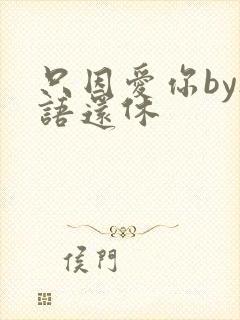 只因愛你by
語還休
侯門